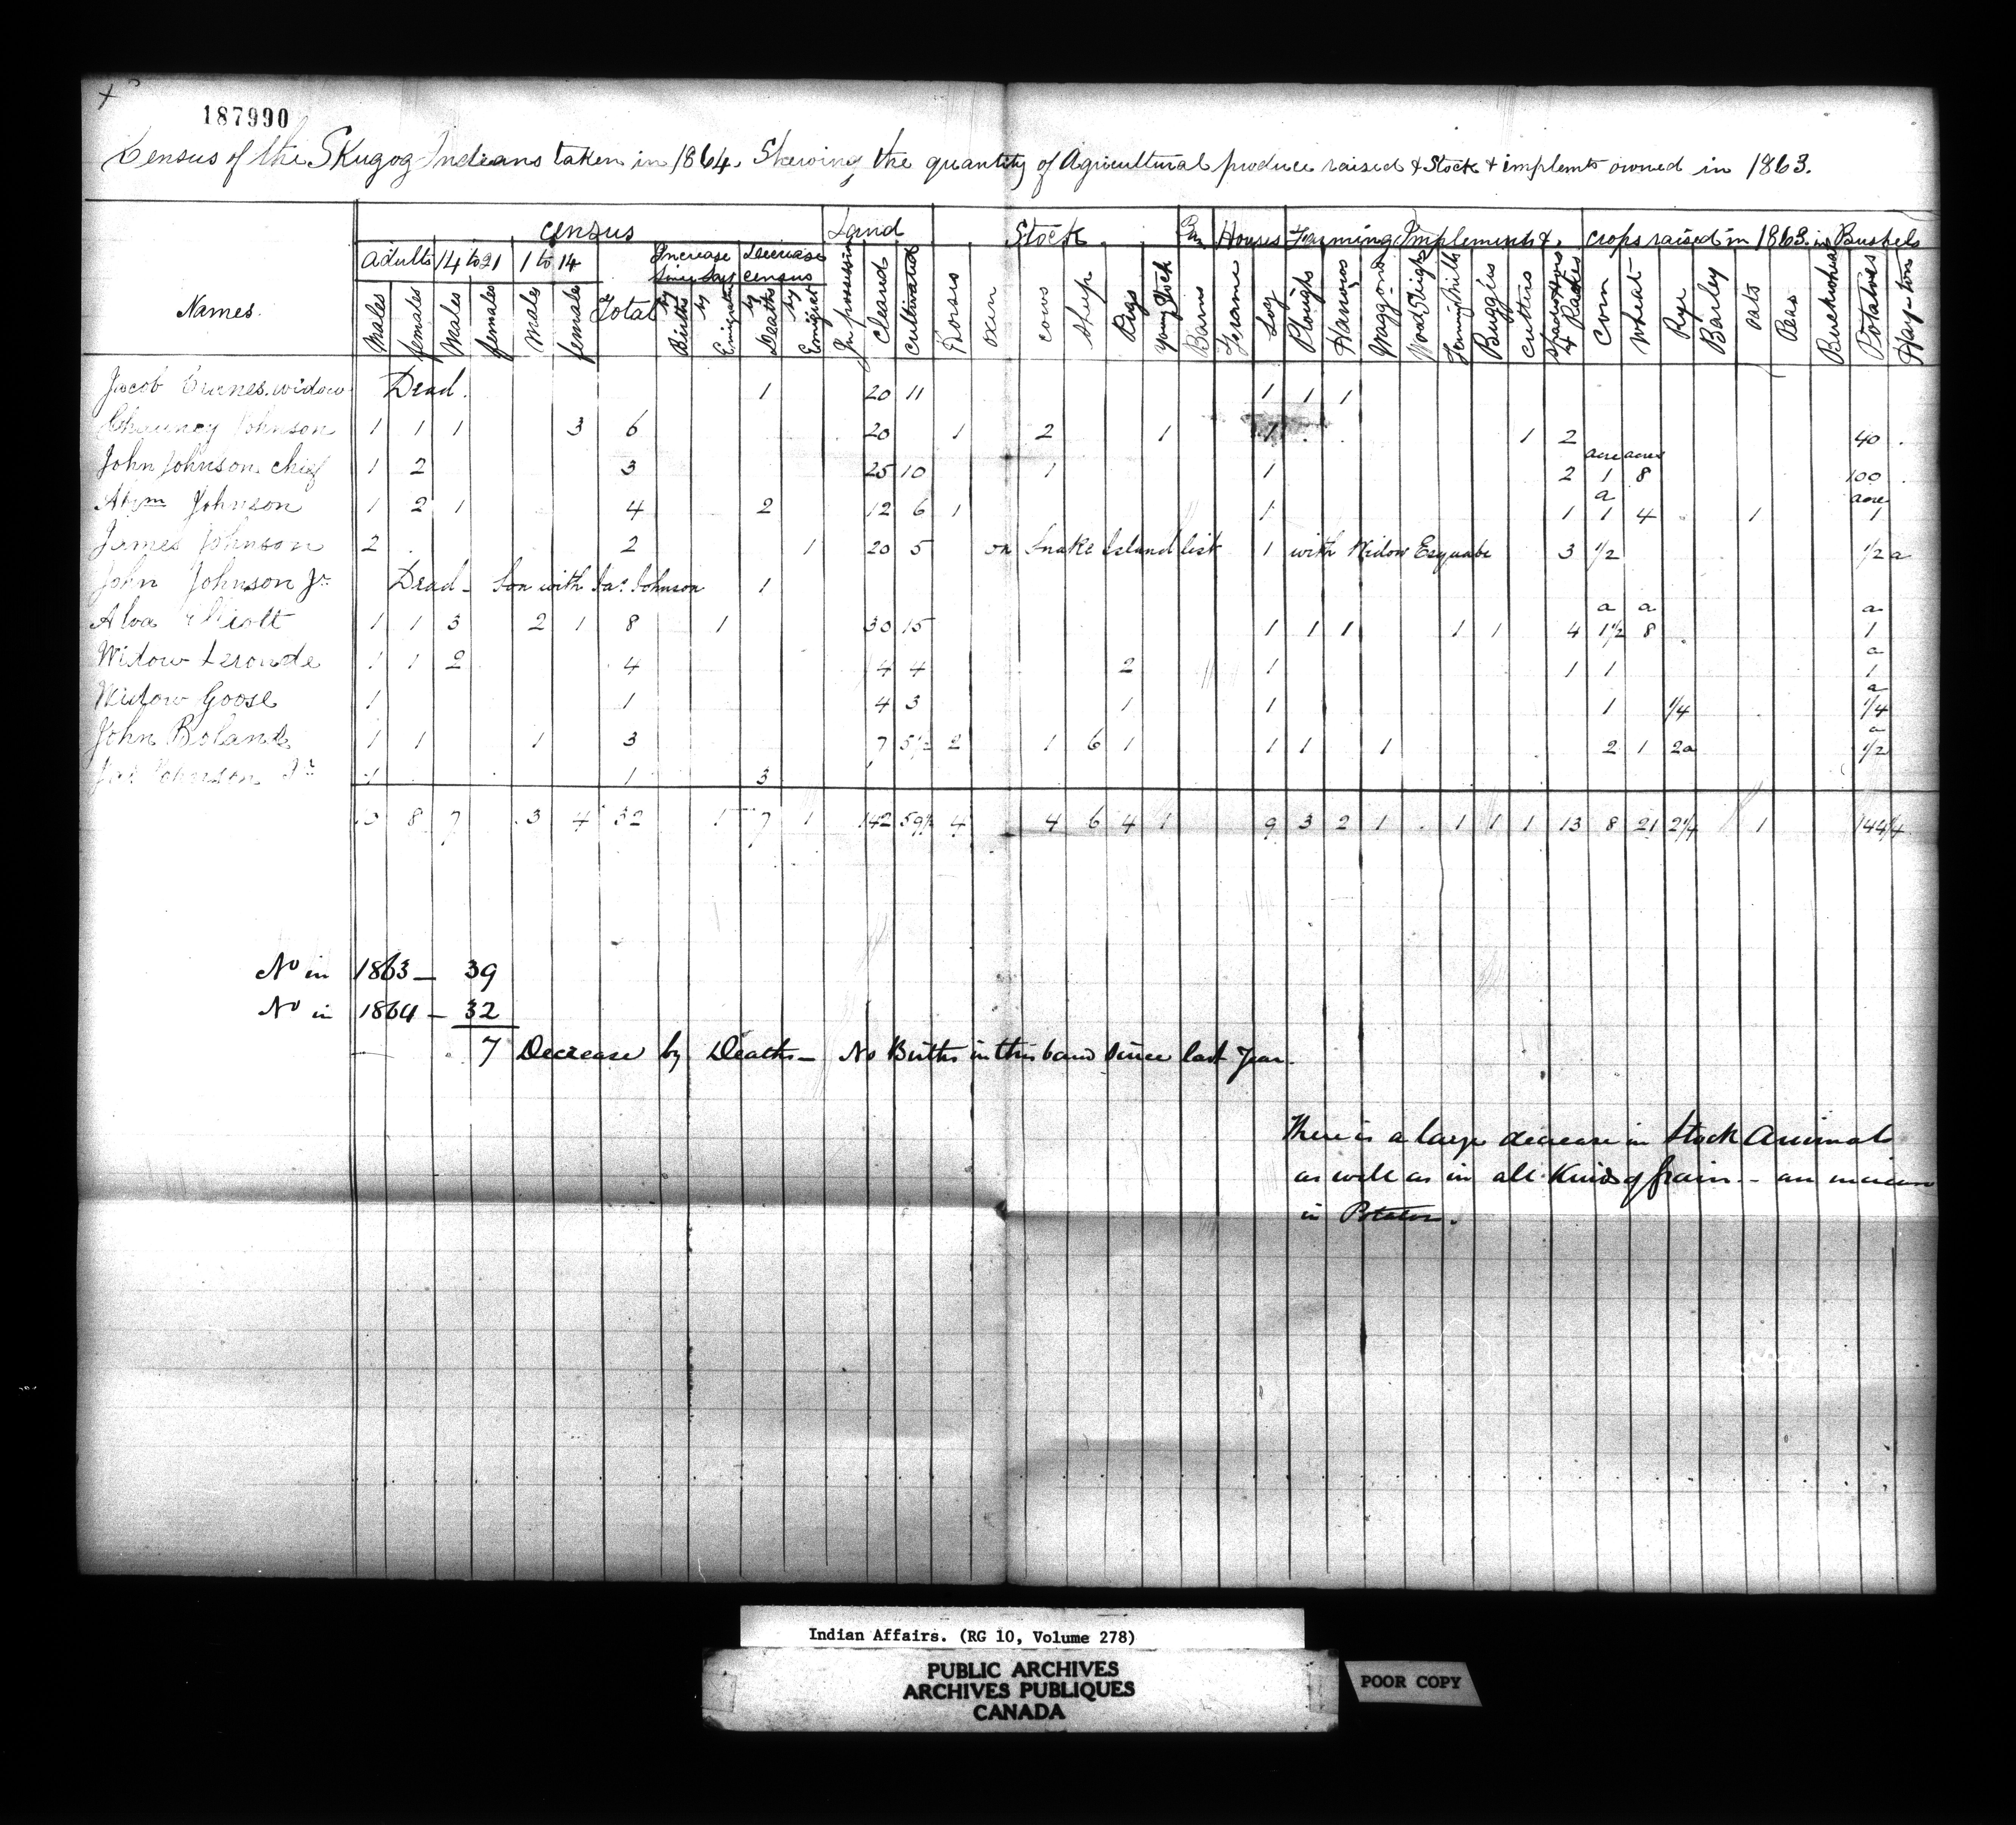 187990
Census of the Skugog Indians taken in 1864. Shewing the quantity of Agricultural produce raised & Stock & implemts owned in 1863.
Names. census Land Stock Houses Farming Implements &. crops raised in 1863. in Bushels
adults 14 to 21 1 to 14 Total Increase Decrease since last census
Males females Males females Males females by Births by Emigratn by Deaths by Emigrat In possession Cleard Cultivated Horses oxen cows sheep Pigs young Stock Barns Frame Log Ploughs Harrows Waggons Wood Sleighs Fanning Mills Buggies cutters Corn Wheat Rye Barley oats Peas Buckwheat Potatoes Hay-ton
Jacob widow Dead. 1 20 11 1 1 1
Chauncy Johnson 1 1 1 3 6 20 1 2 1 1 1 2 40
John Johnson chief 1 2 3 25 10 1 1 2 acre 1 acres 8 100
Abm Johnson 1 2 1 4 2 12 6 1 1 1 a 1 4 1 acre 1
James Johnson 2 2 1 20 5 on Snake Island list 1 with Widow Esquabe 3 1/2 1/2 a
John Johnson Jr Dead - Son with Jas. Johnson 1
Alva Elliott 1 1 3 2 1 8 1 30 15 1 1 1 1 1 4 a 1 1/2 a 8 a 1
Widow Leronde 1 1 2 4 4 4 2 1 1 1 a 1
Widow Goose 1 1 4 3 1 1 1 1/4 a 1/4
John Boland 1 1 1 3 7 5 1/2 2 1 6 1 1 1 1 2 1 2a a 1/2
Johnson 1 1 3
8 7 3 4 32 1 7 1 142 59 1/2 4 4 6 4 1 9 3 2 1 1 1 1 13 8 21 2 1/4 1 144 1/4
No in 1863 - 39
No in 1864 - 32
7 Decrease by Deaths - No Births in this band since last Year.
There is a large decrease in Stock Animals
as well as in all kinds of grain. - an increase
in Potatoes.
Indian Affairs. (RG 10, Volume 278)
PUBLIC ARCHIVES
ARCHIVES PUBLIQUES
CANADA
POOR COPY